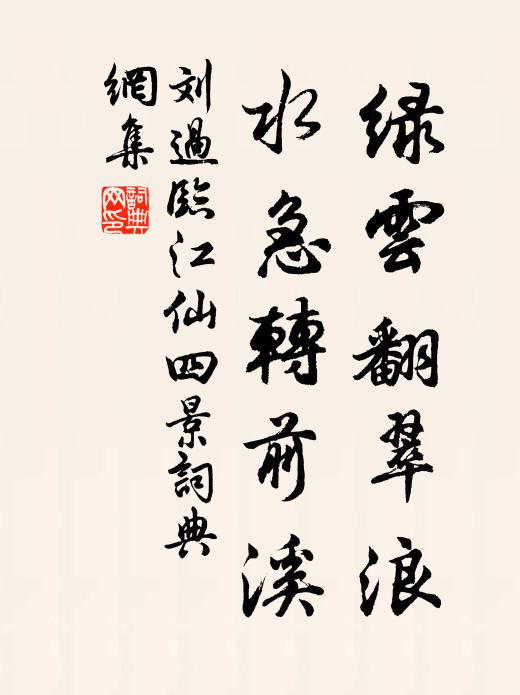 绿雲翻翠浪
水急轉前溪
刘過臨江仙四景詞典
網集
詞典
网印